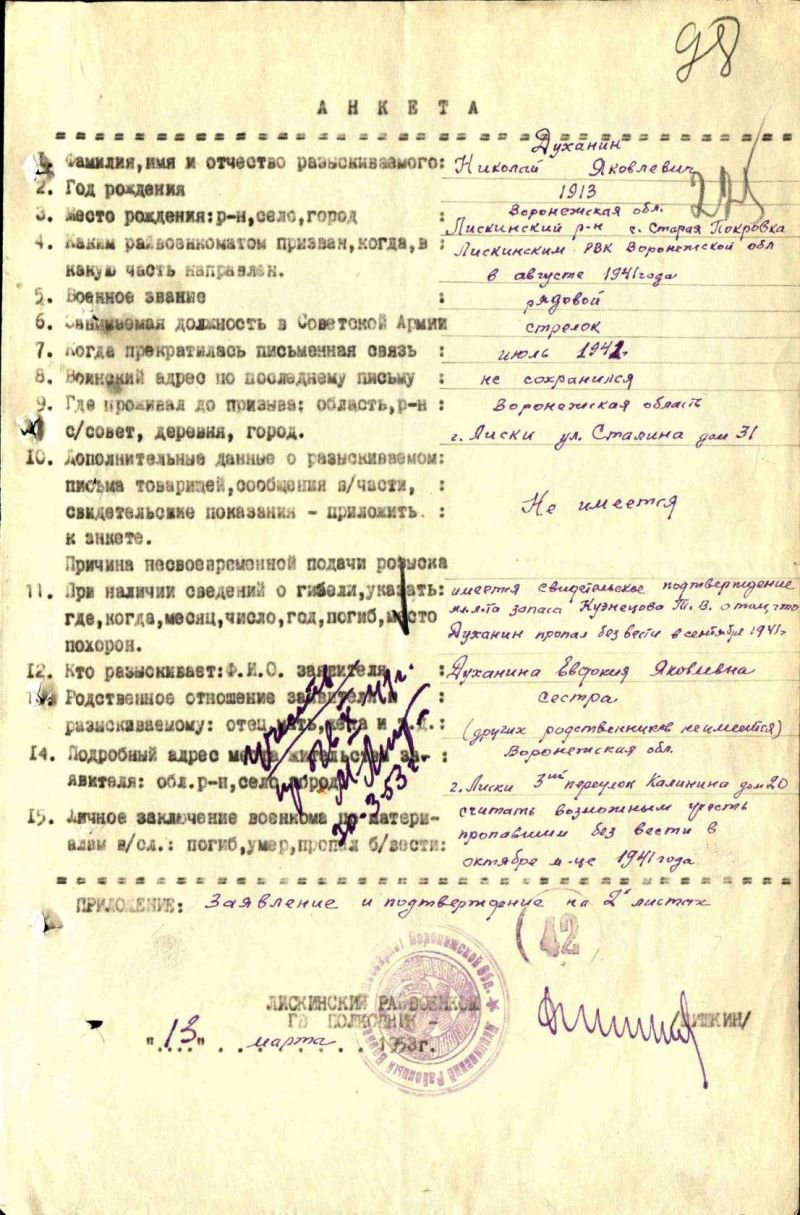 98
АНКЕТА
Духанин
1. Фамилия,имя и отчество разыскиваемого: Николай Яковлевич
225
2. Год рождения 1913
Воронежская обл.
3. Место рождения:р-н,село,город : Лискинский р-н с. Старая Покровка
4. Каким райвоенкоматом призван,когда,в : Лискинским РВК Воронежской обл
какую часть направлен. в августе 1941 года
5. Военное звание : рядовой
6. Занимаемая должность в Советской Армии стрелок
7. Когда прекратилась письменная связь : июль 1941г.
8. Воинский адрес по последнему письму : не сохранился
9. Где проживал до призыва: область,р-н : Воронежская область
с/совет, деревня, город. г. Лиски ул. Сталина дом 31
10. Дополнительные данные о разыскиваемом:
письма товарищей,сообщения в/части, :
свидетельские показания - приложить : Не имеется
к анкете.
Причина несвоевременной подачи розыска
11. При наличии сведений о гибели,указать: имеется свидетельское подтверждение
где,когда,месяц,число,год,погиб,место мл.л-та запаса Кузнецова Т.В. о том, что
похорон. Духанин пропал без вести в сентябре 1941г
12. Кто разыскивает:Ф.И.О. заявителя : Духанина Евфокия Яковлевна
13. Родственное отношение заявителя к : сестра
разыскиваемому: отец,мать,жена и т.д.: (других родственников не имеется)
Воронежская обл.
14. Подробный адрес места жительства за-
явителя: обл.р-н,село,город г. Лиски 3ий переулок Калинина дом 20
15. Личное заключение военкома по матери- считать возможным учесть
алам в/сл.: погиб,умер,пропал б/вести: пропавшим без вести в
октябре м-це 1941 года
учесть
пр б/в X 41г.
30-3-53г
ПРИЛОЖЕНИЕ: Заявление и подтверждение на 2х листах
42
ЛИСКИНСКИЙ РАЙВОЕНКОМ
ГВ ПОЛКОВНИК - /ШИШКИН/
"13" марта 1953г.